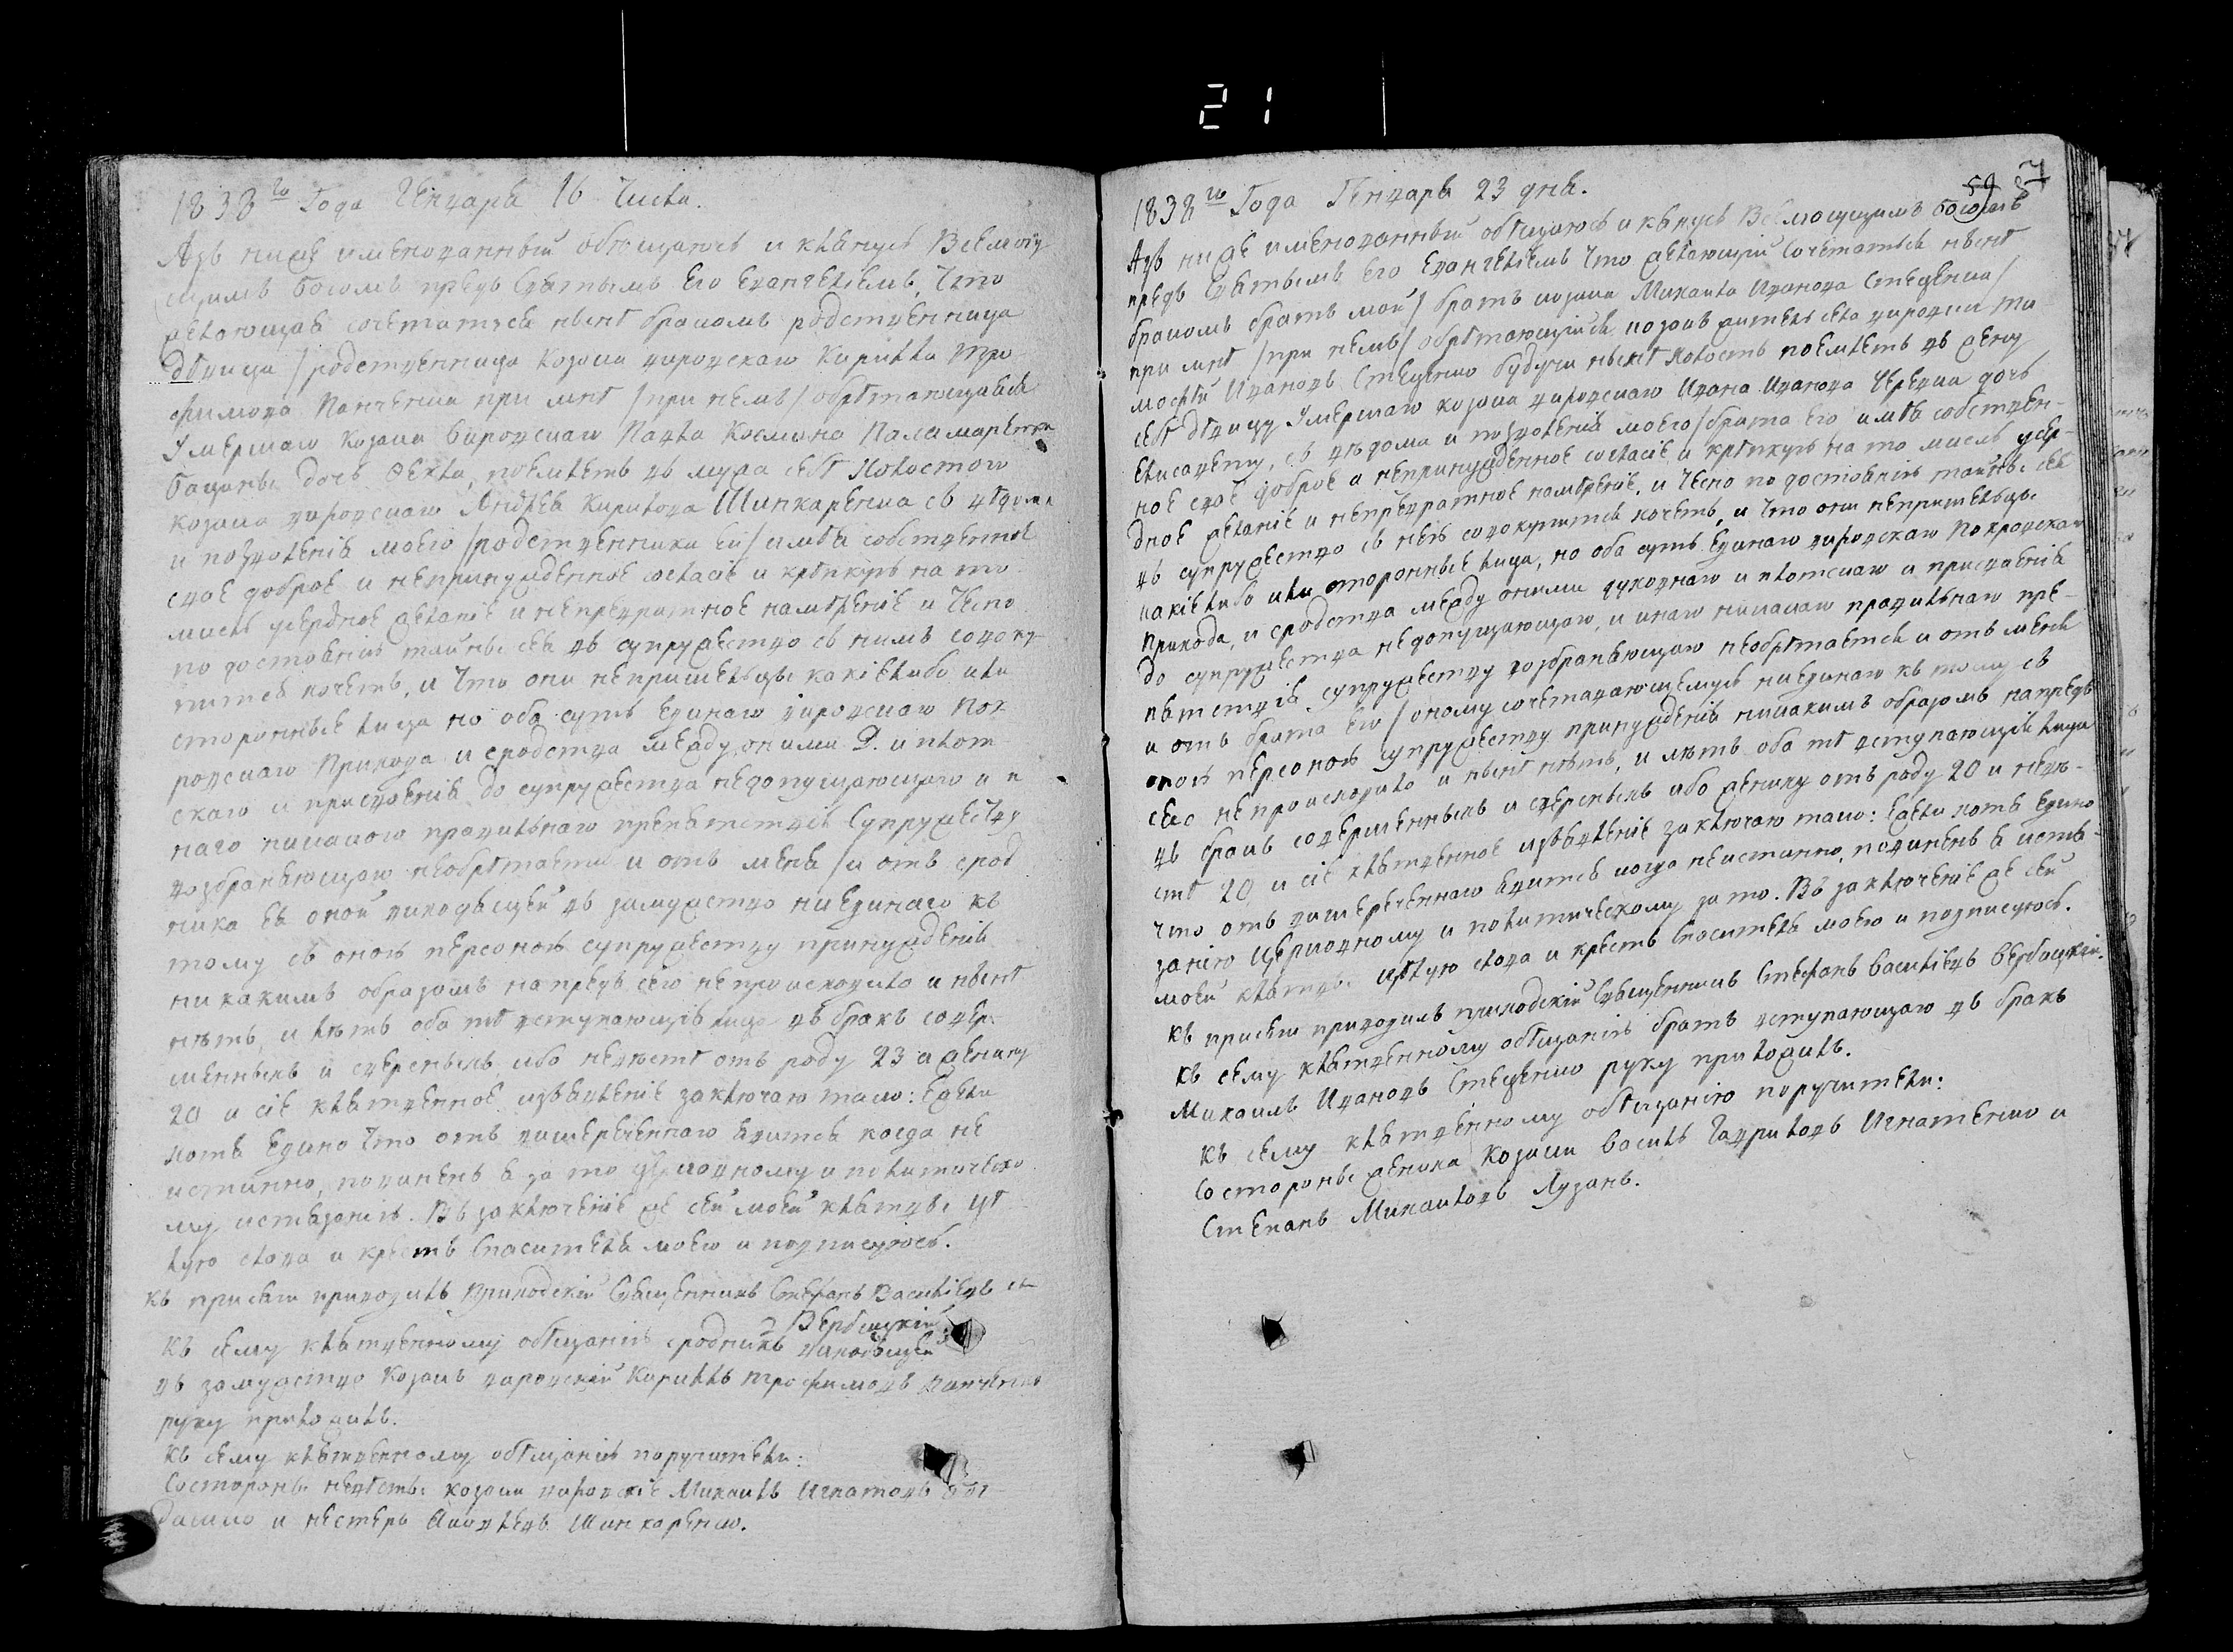 21
1838 го Года Генваря 16 Числа.
Азъ ниже именованный обѣщаюсь и клянусь Всемогу
щимъ Богомъ предъ Святымъ Его Евангелiемъ, Что
желающая сочетатися нынѣ бракомъ родственница
дѣвица / родственница Козака Кирилла Тро
фимова Панченка при мнѣ / при немъ / обрѣтающаяся
Умершаго Козака Павла Космина Паламаренка
дочь Фекла, поемлетъ въ мужа себѣ Холостого
козака Андрея Кирилова Шинкаренка съ вѣдома
и позволенiя моего / родственника ея / имѣя собственное
свое доброе и непринужденное согласiе и крѣпкую на то
мысль усердное желанiе и непревратное намѣренiе и Чесно
по достоянiю тайны сея въ супружество съ нимъ совоку
питися хочетъ, и Что они непришельцы какiелибо или
сторонные лица но оба суть Единаго Пок
ровскаго Прихода и сродства между оними Д. и плот
скаго и присвоенiя до супружества недопущающаго и и
наго никакого правильнаго препятствiя Супружеству
возбраняющаго необрѣтается и отъ меня / и отъ срод
ника ея оной выходящей въ замужство ниединаго къ
тому съ оною персоною супружеству принужденiя
никакимъ образомъ напредъ сего не происходило и нынѣ
нѣтъ, и лѣтъ оба тѣ вступающiя лица въ бракъ совер
шенныхъ и сверсныхъ ибо невѣстѣ отъ роду 23 а жениху
20 и сiе клятвенное извявленiе заключаю тако: Ежели
хотя Едино Что отъ вишереченнаго явится когда не
истинно, повиненъ я за то церковному и политическо
му истязанiю. Въ заключенiе же сей моей клятвы цѣ
лую слова и крестъ Спасителя моего и подписуюсь.
Къ присяги приводилъ Приходскiй Священникъ Стефанъ Василiевъ
Вербицкiй
Къ сему клятвенному обѣщанiю сродникъ выходящей
въ замужство Козакъ Кириллъ Трофимовъ Панченко
руку приложилъ.
Къ сему клятвенному обѣщанiю поручители:
Состороны невѣсты козаки Михаилъ Игнатовъ
и Нестеръ Яковлевъ Шинкаренко.
1838 го Года Генваря 23 дня.
59 7
Азъ ниже именованный обѣщаюсь и клянусь Всемогущимъ Богомъ
предъ Святымъ Его Евангелiемъ Что желающiй Сочетаться нынѣ
бракомъ братъ мой / братъ козака Михаила Иванова Стеценка /
при мнѣ / при немъ / обрѣтающiйся козакъ житель села Ти
мофей Ивановъ Стеценко будучи нынѣ Холостъ поемлетъ въ жену
себѣ дѣвицу Умершаго козака Ивана Иванова дочь
Елисавету, съ вѣдома и позволенiя моего / брата его имѣя собствен
ное свое доброе и непринужденное согласiе и крѣпкую на то мысль усер
дное желанiе и непревратное намѣренiе, и Чесно по достоянiю тайны сея
въ супружество съ нею совокупитися хочетъ, и Что они непришельцы
какiелибо или сторонные лица, но оба суть Единаго Покровскаго
Прихода, и сродства между оними духовнаго и плотскаго и присвоенiя
до супружества недопущающаго, и инаго никакаго правильнаго пре
пятствiя супружеству возбраняющаго необрѣтается и отъ меня
и отъ брата его / оному сочетавающемуся ниединаго къ тому съ
оною персоною супружеству принужденiя никакимъ образомъ напредъ
сего не происходило и нынѣ нѣтъ, и лѣтъ оба тѣ вступающiя лица
въ бракъ совершенныхъ и сверсныхъ ибо жениху отъ роду 20 и невѣ
стѣ 20, и сiе клятвенное извявленiе заключаю тако: Ежели хотя Едино
что отъ вишереченнаго явится когда неистинно, повиненъ я истя
занiю Церковному и политическому за то. Въ заключенiе же сей
моей клятвы цѣлую слова и крестъ Спасителя моего и подписуюсь.
Къ присяги приводилъ приходскiй Священникъ Стефанъ Василiевъ Вербицкiй.
Къ сему клятвенному обѣщанiю братъ вступающаго въ бракъ
Михаилъ Ивановъ Стеценко руку приложилъ.
Къ сему клятвенному обѣщанiю поручители:
Состороны жениха Козаки Василь Гавриловъ Игнатенко и
Степанъ Михаиловъ Лузанъ.